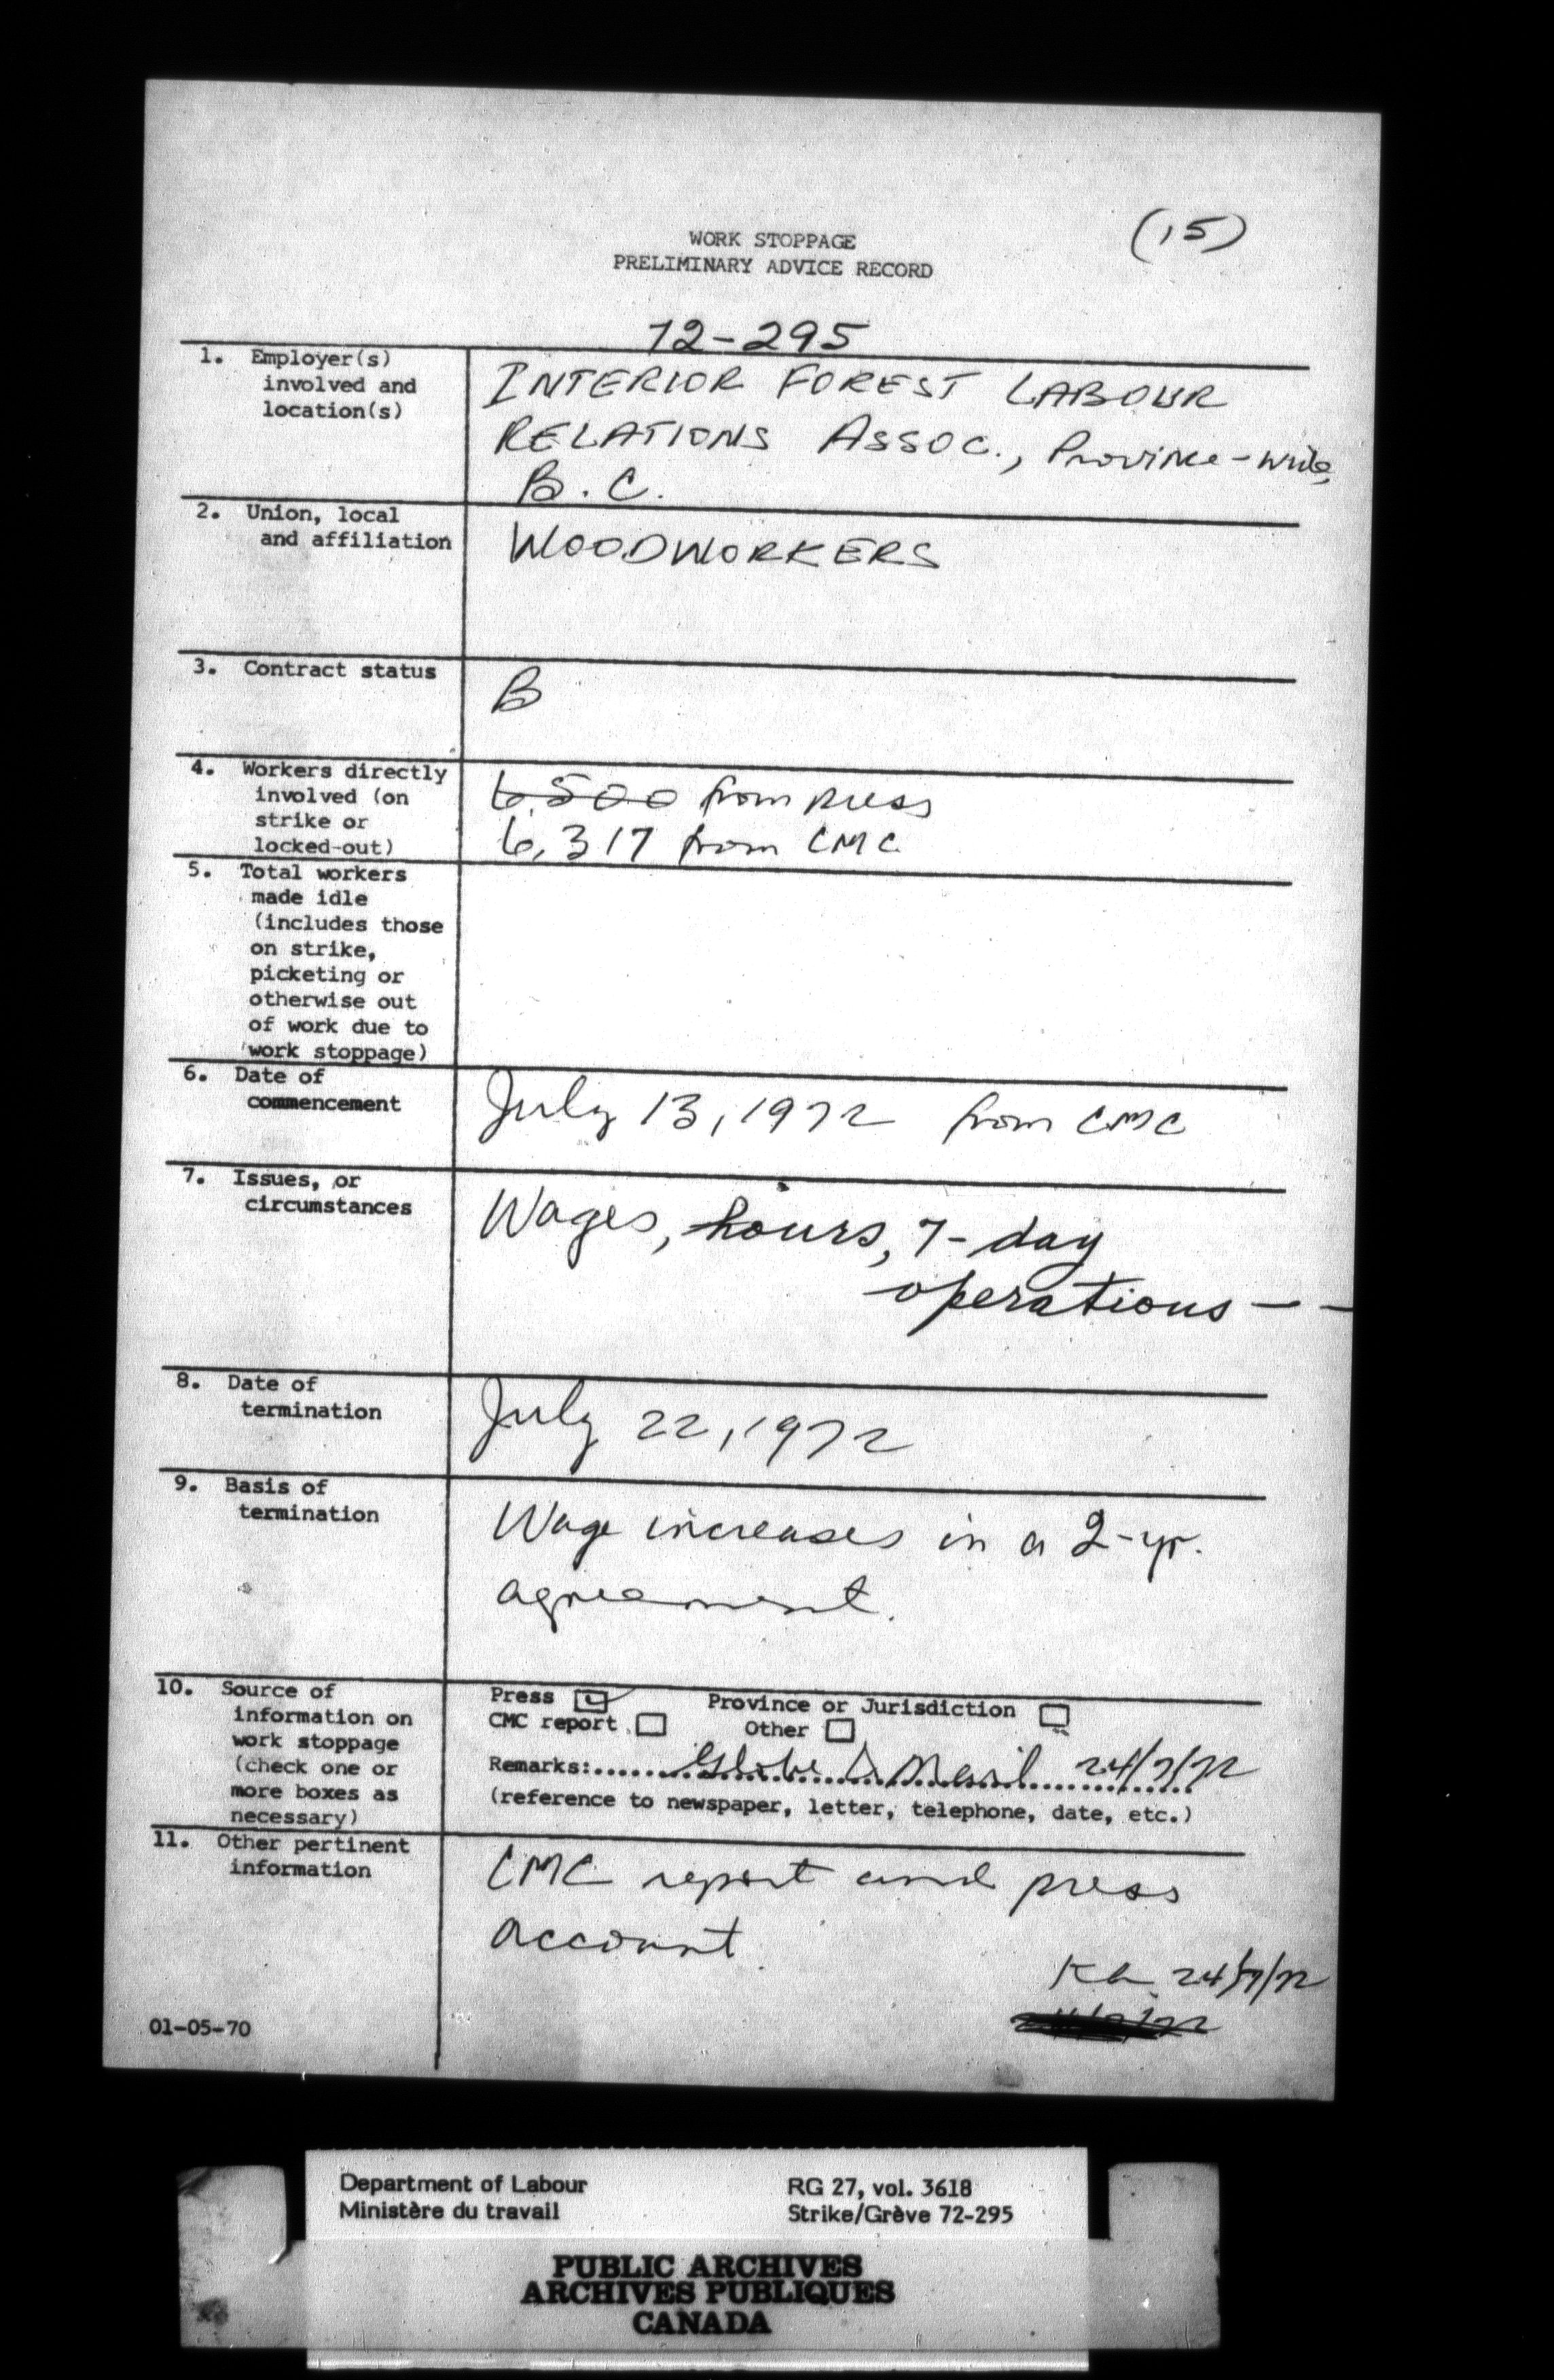 (15)
WORK STOPPAGE
PRELIMINARY ADVICE RECORD
72-295
1. Employer(s)
involved and
location(s)
INTERIOR FOREST LABOUR
RELATIONS ASSOC., Province-wide,
B.C.
2. Union, local
and affiliation
WOODWORKERS
3. Contract status
B
4. Workers directly
involved (on
strike or
locked-out)
6,500 from press
6,317 from CMC
5. Total workers
made idle
(includes those
on strike,
picketing or
otherwise out
of work due to
work stoppage)
6. Date of
commencement
July 13, 1972 from CMC
7. Issues, or
circumstances
Wages, hours, 7-day
operations - -
8. Date of
termination
July 22, 1972
9. Basis of
termination
Wage increases in a 2-yr.
agreement.
10. Source of
information on
work stoppage
(check one or
more boxes as
necessary)
Press Province or Jurisdiction
CMC report Other
Remarks: Globe & Mail 24/7/72
(reference to newspaper, letter, telephone, date, etc.)
11. Other pertinent
information
CMC report and press
account.
24/7/72
01-05-70
Department of Labour
Ministère du travail
RG 27, vol. 3618
Strike/Grève 72-295
PUBLIC ARCHIVES
ARCHIVES PUBLIQUES
CANADA